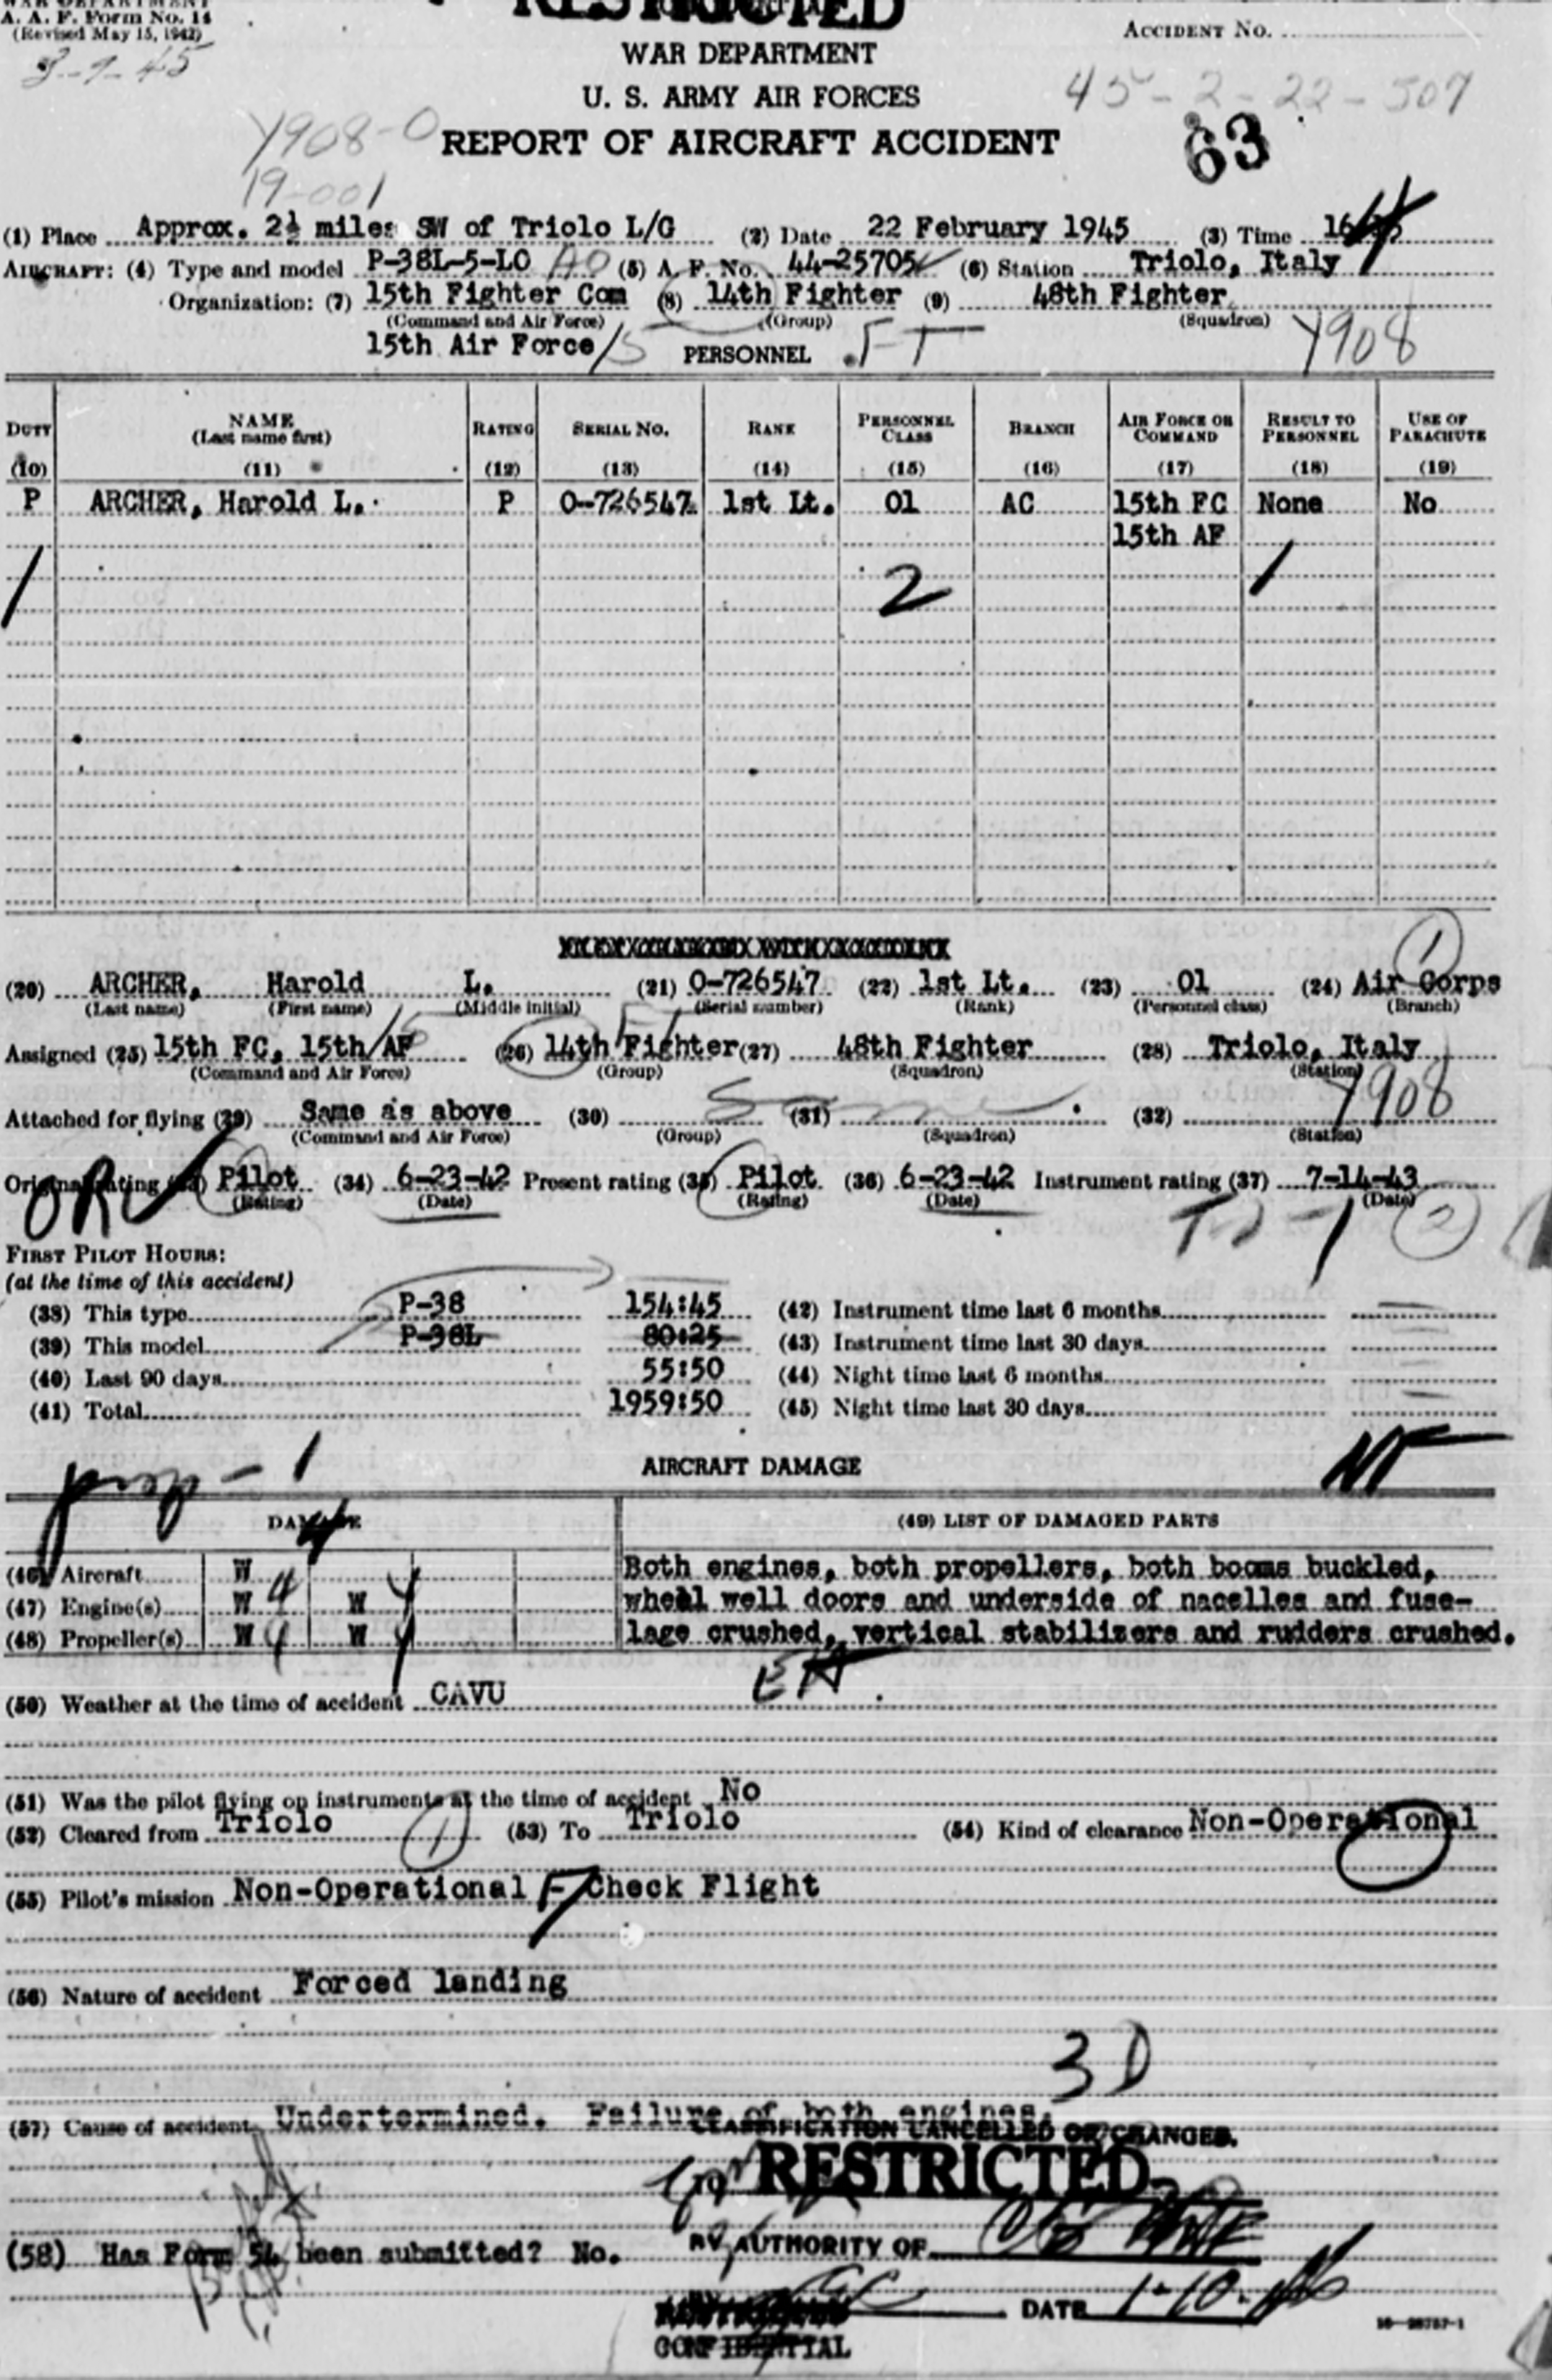 WAR DEPARTMENT
A. A. F. Form No. 14
(Revised May 15, 1942)
RESTRICTED
ACCIDENT No.
3-9-45
WAR DEPARTMENT
U. S. ARMY AIR FORCES
45-2-22-507
Y908-0
REPORT OF AIRCRAFT ACCIDENT
63
19-001
(1) Place Approx. 2½ miles SW of Triolo L/G (2) Date 22 February 1945 (3) Time
AIRCRAFT: (4) Type and model P-38L-5-LO (5) A. F. No. 44-25705 (6) Station Triolo, Italy
Organization: (7) 15th Fighter Com (8) 14th Fighter (9) 48th Fighter
(Command and Air Force) (Group) (Squadron)
15th Air Force/15 PERSONNEL FT Y908
DUTY NAME RATING SERIAL NO. RANK PERSONNEL CLASS BRANCH AIR FORCE OR COMMAND RESULT TO PERSONNEL USE OF PARACHUTE
(Last name first)
(10) (11) (12) (13) (14) (15) (16) (17) (18) (19)
P ARCHER, Harold L. P O-726547 1st Lt. 01 AC 15th FC None No
15th AF
/ 2 /
1
(20) ARCHER, Harold L. (21) O-726547 (22) 1st Lt. (23) 01 (24) Air Corps
(Last name) (First name) (Middle initial) (Serial number) (Rank) (Personnel class) (Branch)
Assigned (25) 15th FC, 15th AF (26) 14th Fighter (27) 48th Fighter (28) Triolo, Italy
(Command and Air Force) (Group) (Squadron) (Station)
Attached for flying (29) Same as above (30) Same (31) (32) Y908
(Command and Air Force) (Group) (Squadron) (Station)
Original rating (33) Pilot (34) 6-23-42 Present rating (35) Pilot (36) 6-23-42 Instrument rating (37) 7-14-43
(Rating) (Date) (Rating) (Date) (Date)
FIRST PILOT HOURS:
(at the time of this accident)
(38) This type P-38 154:45 (42) Instrument time last 6 months
(39) This model P-38L 80:25 (43) Instrument time last 30 days
(40) Last 90 days 55:50 (44) Night time last 6 months
(41) Total 1959:50 (45) Night time last 30 days
AIRCRAFT DAMAGE
DAMAGE (49) LIST OF DAMAGED PARTS
(46) Aircraft W Both engines, both propellers, both booms buckled,
(47) Engine(s) W 4 W 4 wheel well doors and underside of nacelles and fuse-
(48) Propeller(s) W 4 W 4 lage crushed, vertical stabilizers and rudders crushed.
(50) Weather at the time of accident CAVU
(51) Was the pilot flying on instruments at the time of accident No
(52) Cleared from Triolo (53) To Triolo (54) Kind of clearance Non-Operational
(55) Pilot's mission Non-Operational - Check Flight
(56) Nature of accident Forced landing
3D
(57) Cause of accident Undertermined. Failure of both engines.
CLASSIFICATION CANCELLED OR CHANGED.
RESTRICTED
(58) Has Form 54 been submitted? No.
BY AUTHORITY OF
DATE 1-10-46
CONFIDENTIAL
16-28757-1